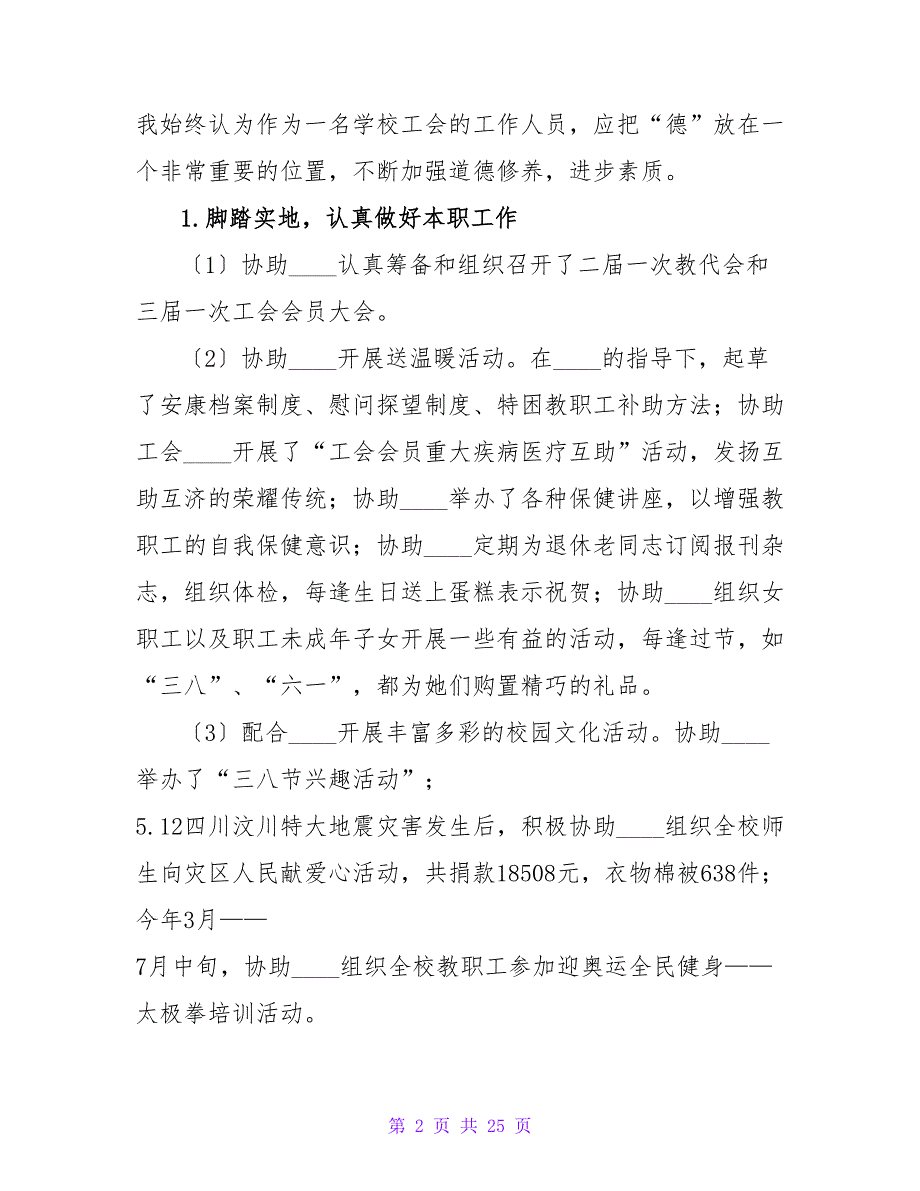 我始终认为作为一名学校工会的工作人员，应把“德”放在一
个非常重要的位置，不断加强道德修养，进步素质。
1.脚踏实地，认真做好本职工作
〔1〕协助____认真筹备和组织召开了二届一次教代会和
三届一次工会会员大会。
〔2〕协助____开展送温暖活动。在____的指导下，起草
了安康档案制度、慰问探望制度、特困教职工补助方法；协助
工会____开展了“工会会员重大疾病医疗互助”活动，发扬互
助互济的荣耀传统；协助____举办了各种保健讲座，以增强教
职工的自我保健意识；协助____定期为退休老同志订阅报刊杂
志，组织体检，每逢生日送上蛋糕表示祝贺；协助____组织女
职工以及职工未成年子女开展一些有益的活动，每逢过节，如
“三八”、“六一”，都为她们购置精巧的礼品。
〔3〕配合____开展丰富多彩的校园文化活动。协助____
举办了“三八节兴趣活动”；
5.12四川汶川特大地震灾害发生后，积极协助____组织全校师
生向灾区人民献爱心活动，共捐款18508元，衣物棉被638件；
今年3月——
7月中旬，协助____组织全校教职工参加迎奥运全民健身——
太极拳培训活动。
第 2 页 共 25 页